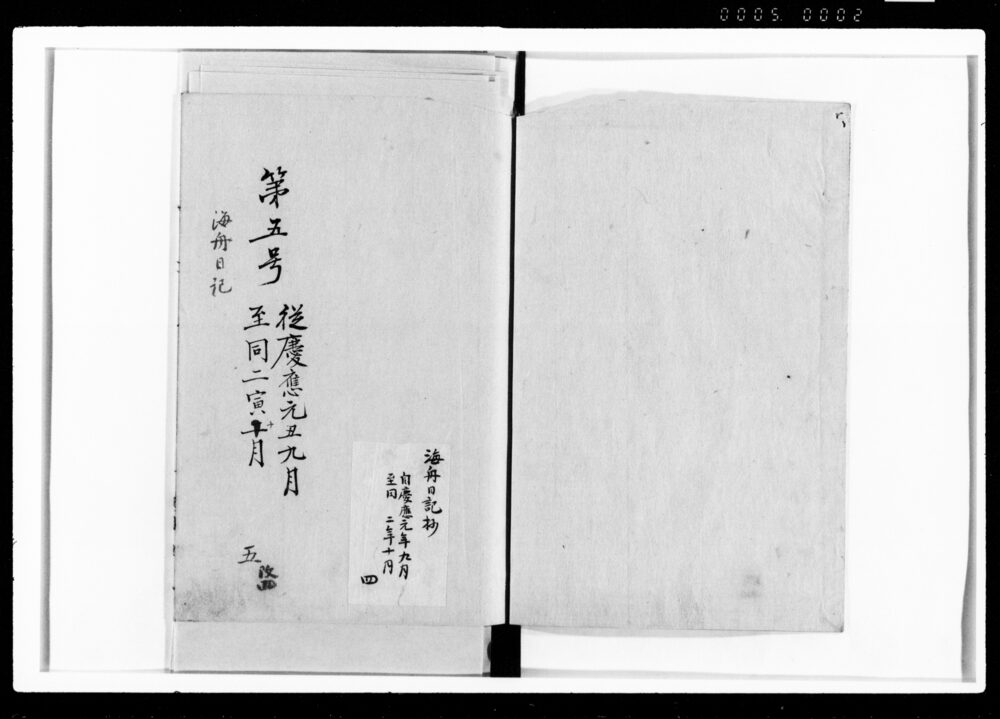 0005 0002
海舟日記抄
自慶應元年九月
至同二年十月
四
第五号
從慶應元丑九月
至同二寅十月
海舟日記
五
改四